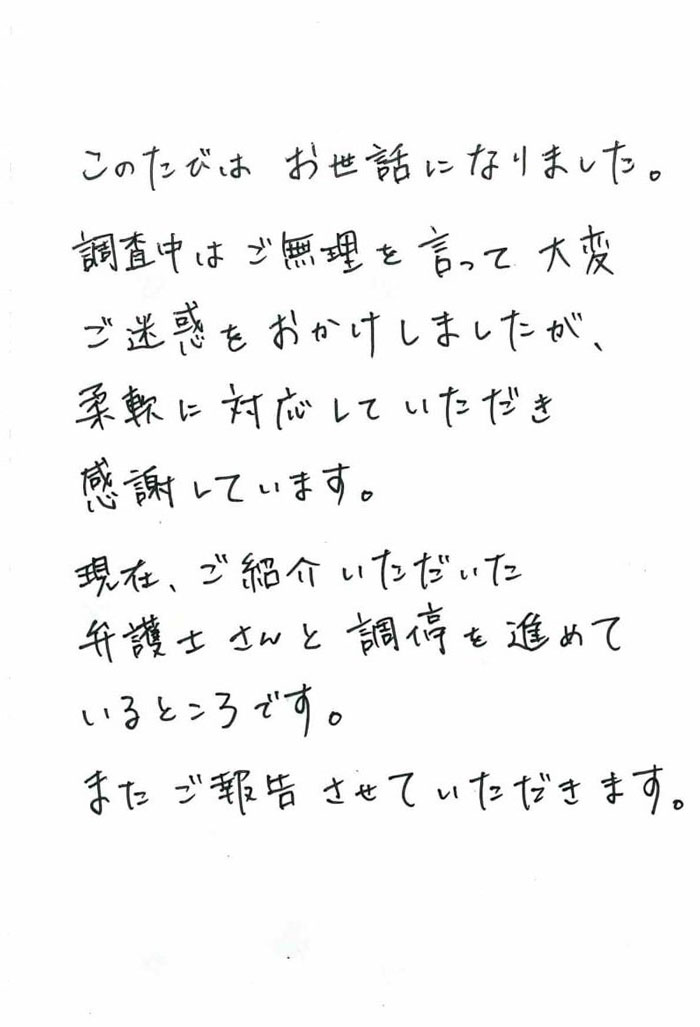 このたびは お世話になりました。
調査中は ご無理を言って 大変
ご迷惑をおかけしましたが、
柔軟に対応していただき
感謝しています。
現在、ご紹介いただいた
弁護士さんと調停を進めて
いるところです。
またご報告させていただきます。